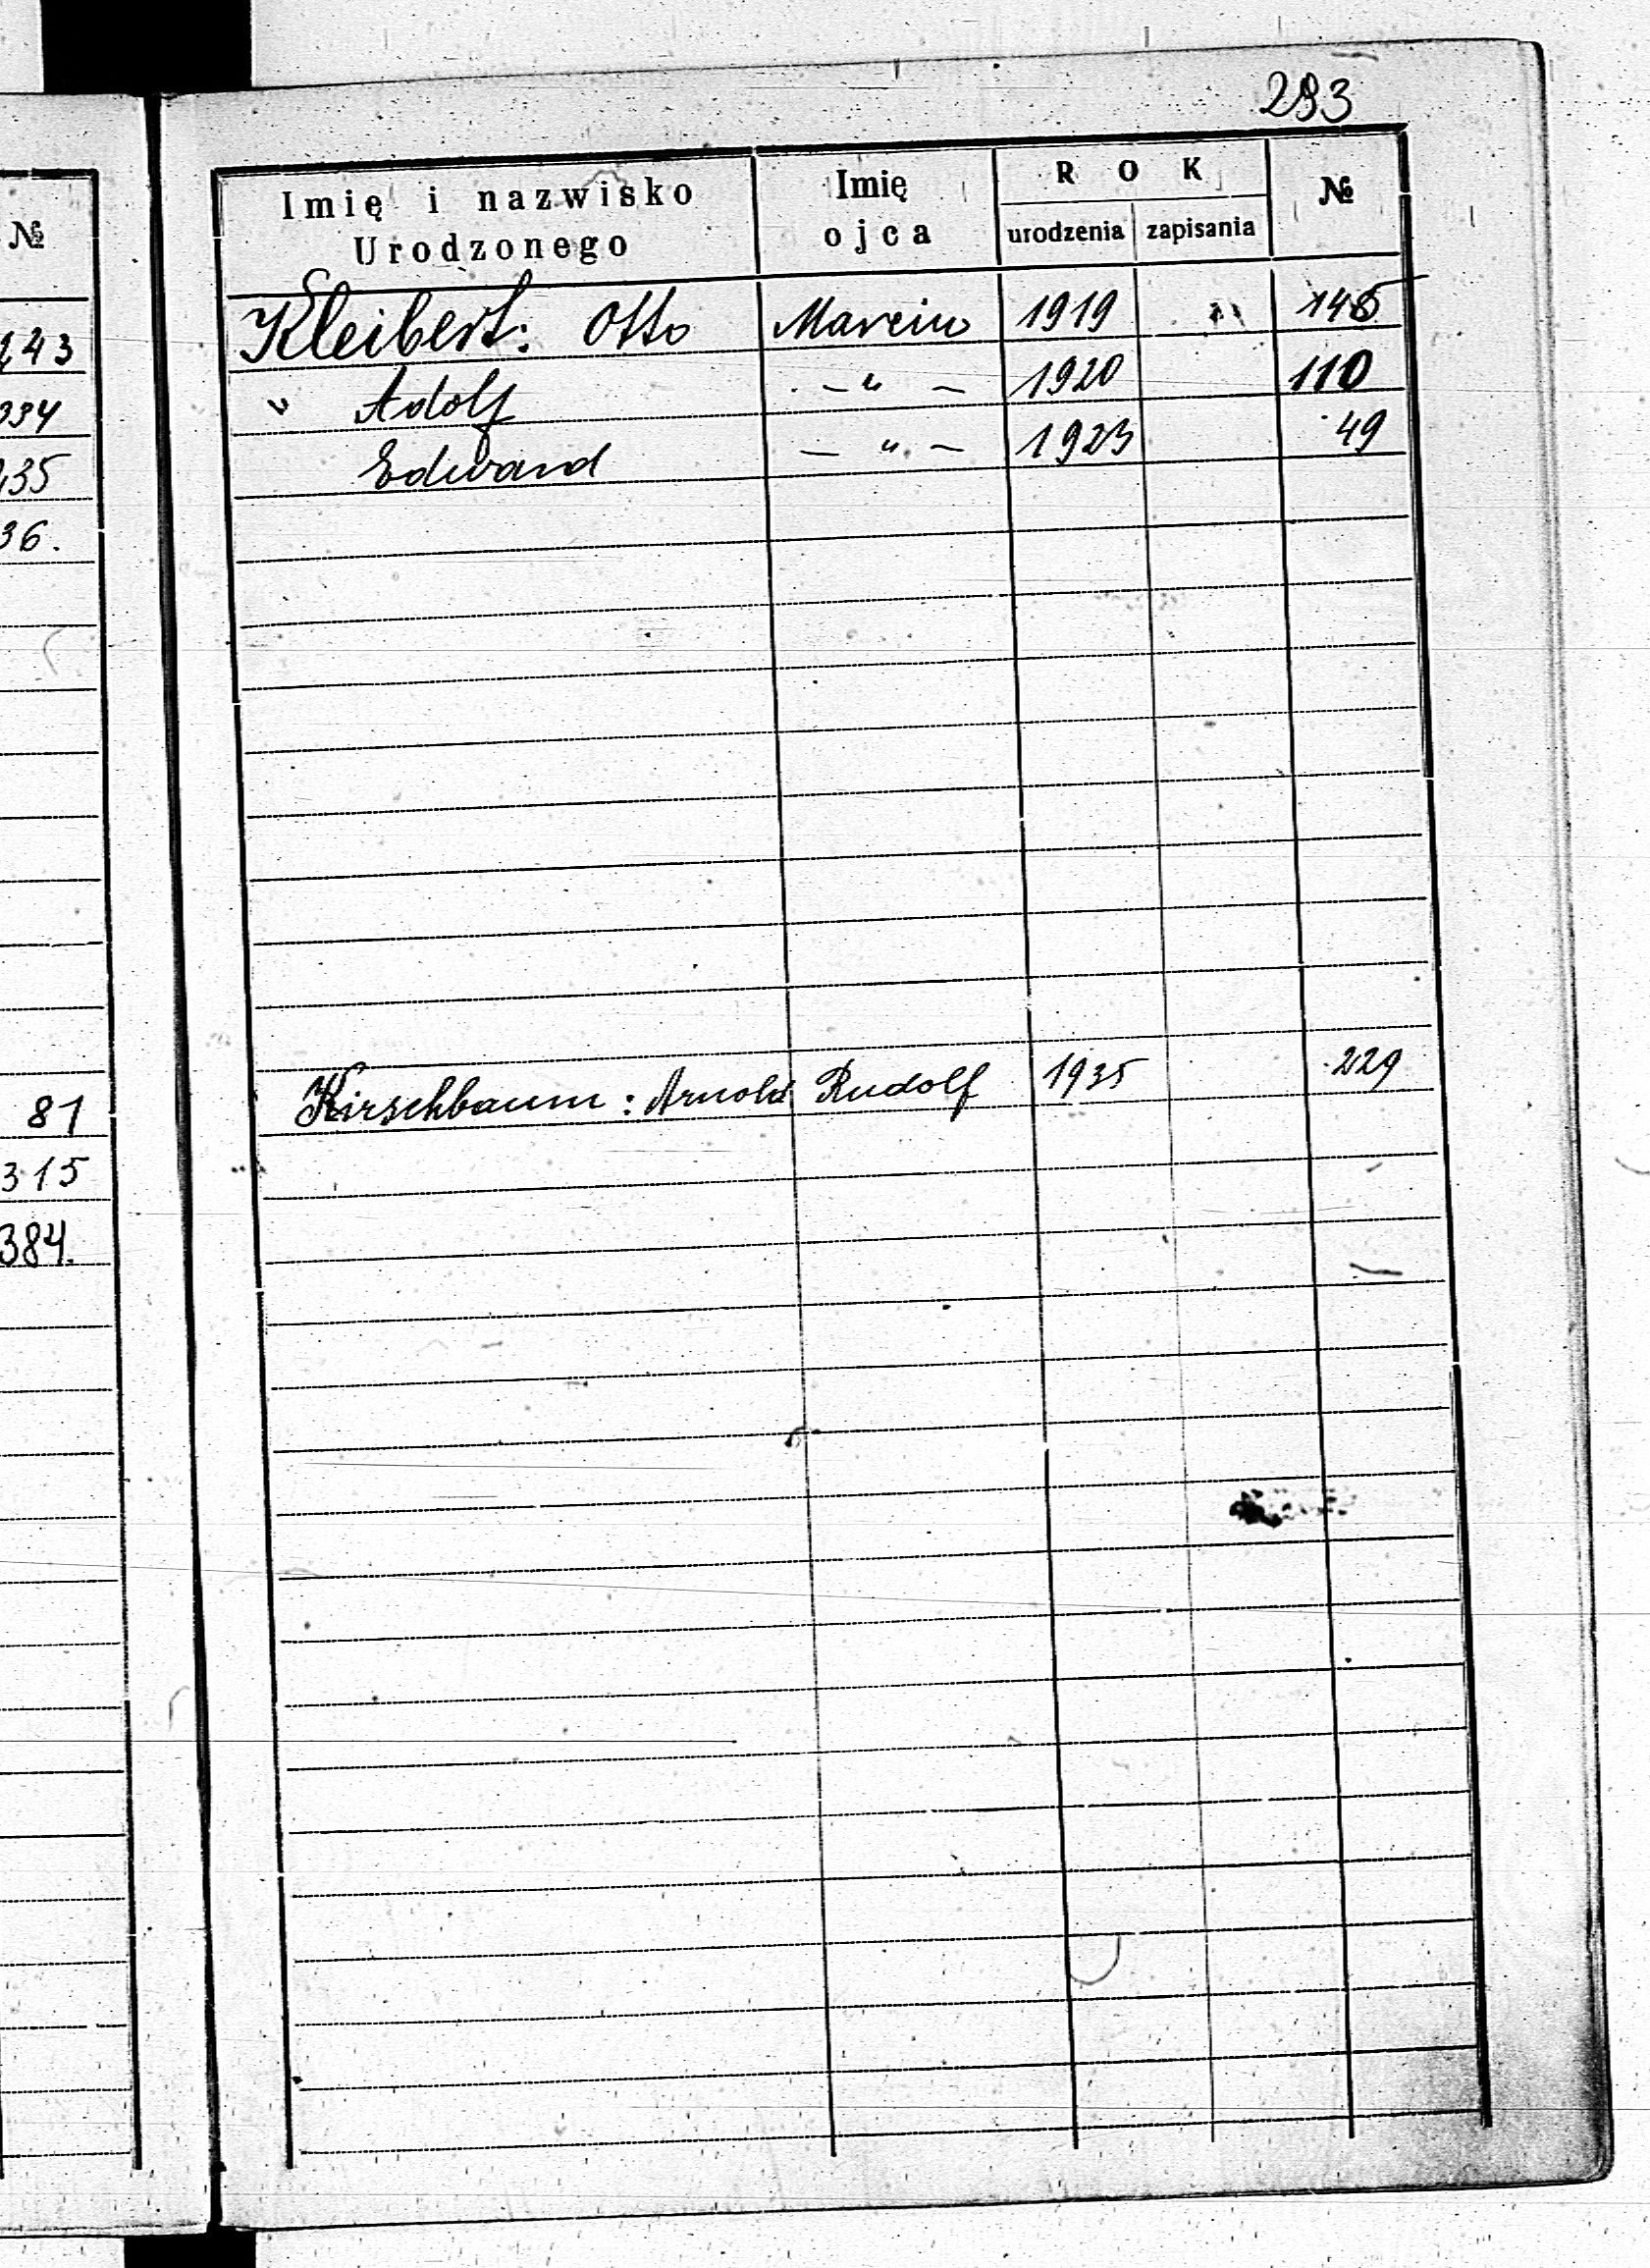 №
43
334
135
36.
81
315
384.
293
Imię i nazwisko Urodzonego
Imię ojca
ROK
urodzenia zapisania
№
Kleibert: Otto Marcin 1919 " 145
" Adolf — " — 1920 110
Edward — " — 1923 49
Kirschbaum: Arnold Rudolf 1935 229